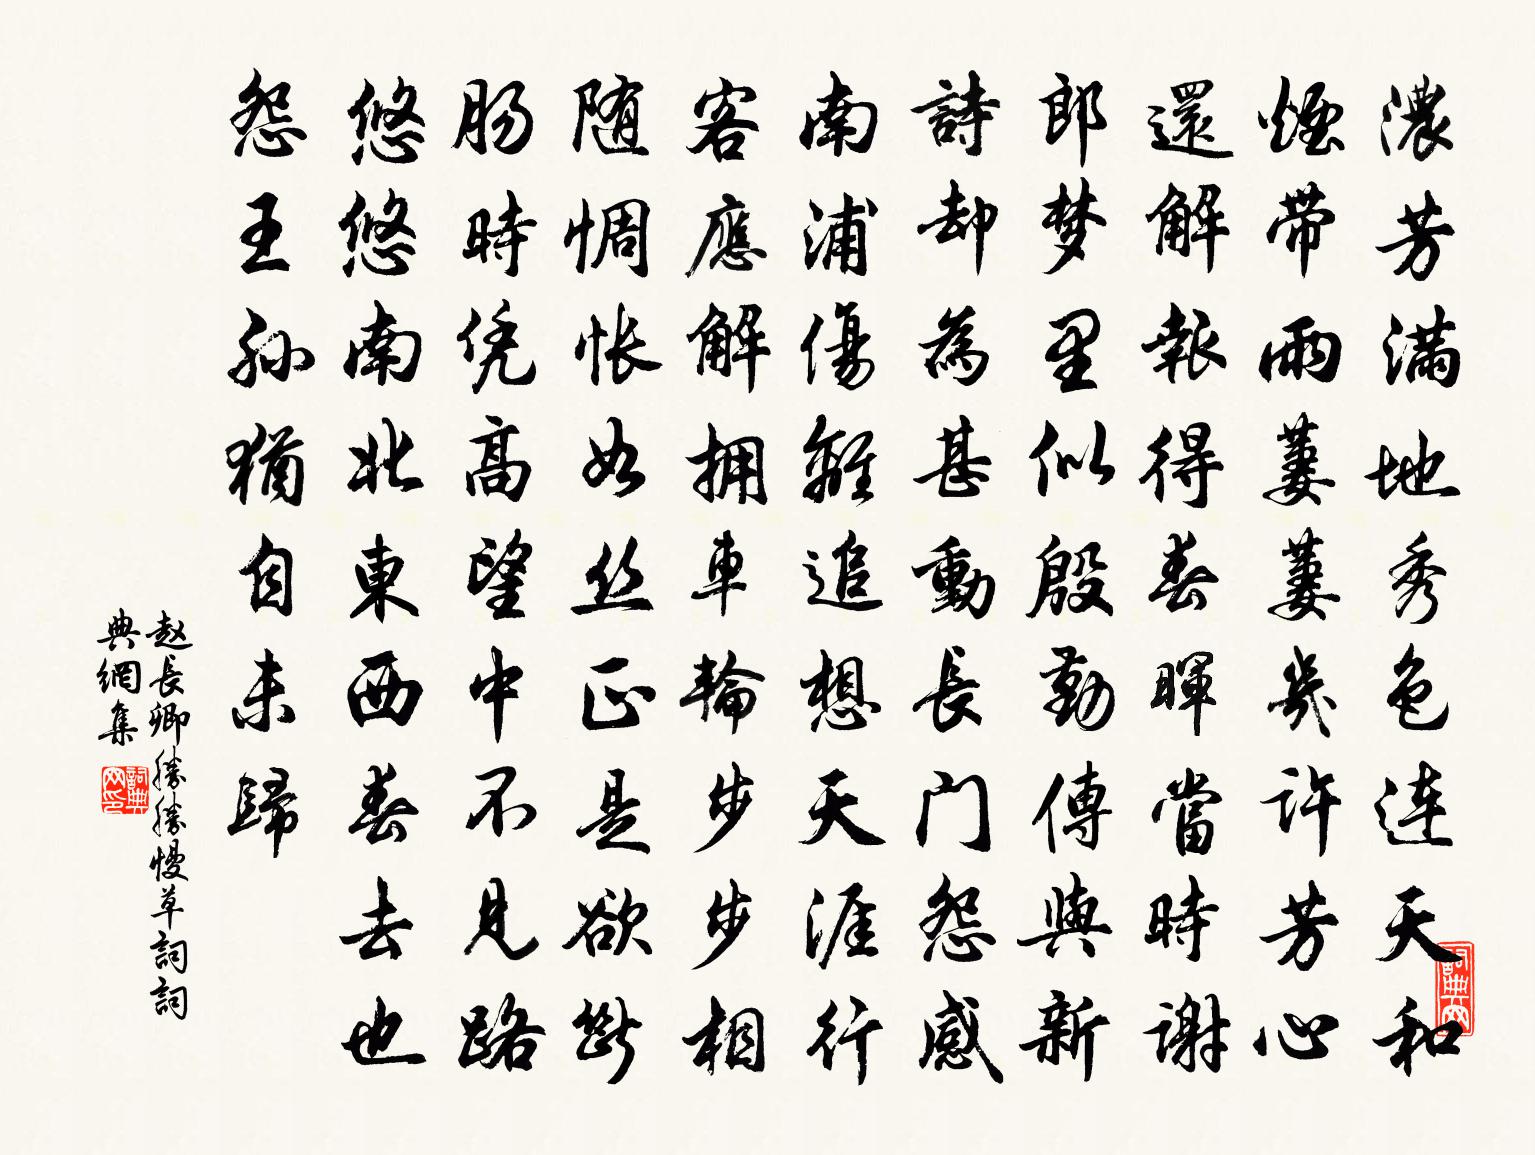 濃芳满地秀色連天和
煙帶雨萋萋幾許芳心
還解報得春暉當時謝
郎梦里似殷勤傳與新
詩却為甚動長门怨感
南浦傷離追想天涯行
客應解拥車輪步步相
随惆怅如丝正是欲斷
肠時凭高望中不見路
悠悠南北東西春去也
怨王孙猶自未歸
赵長卿勝勝慢草詞詞
典網集
詞典网